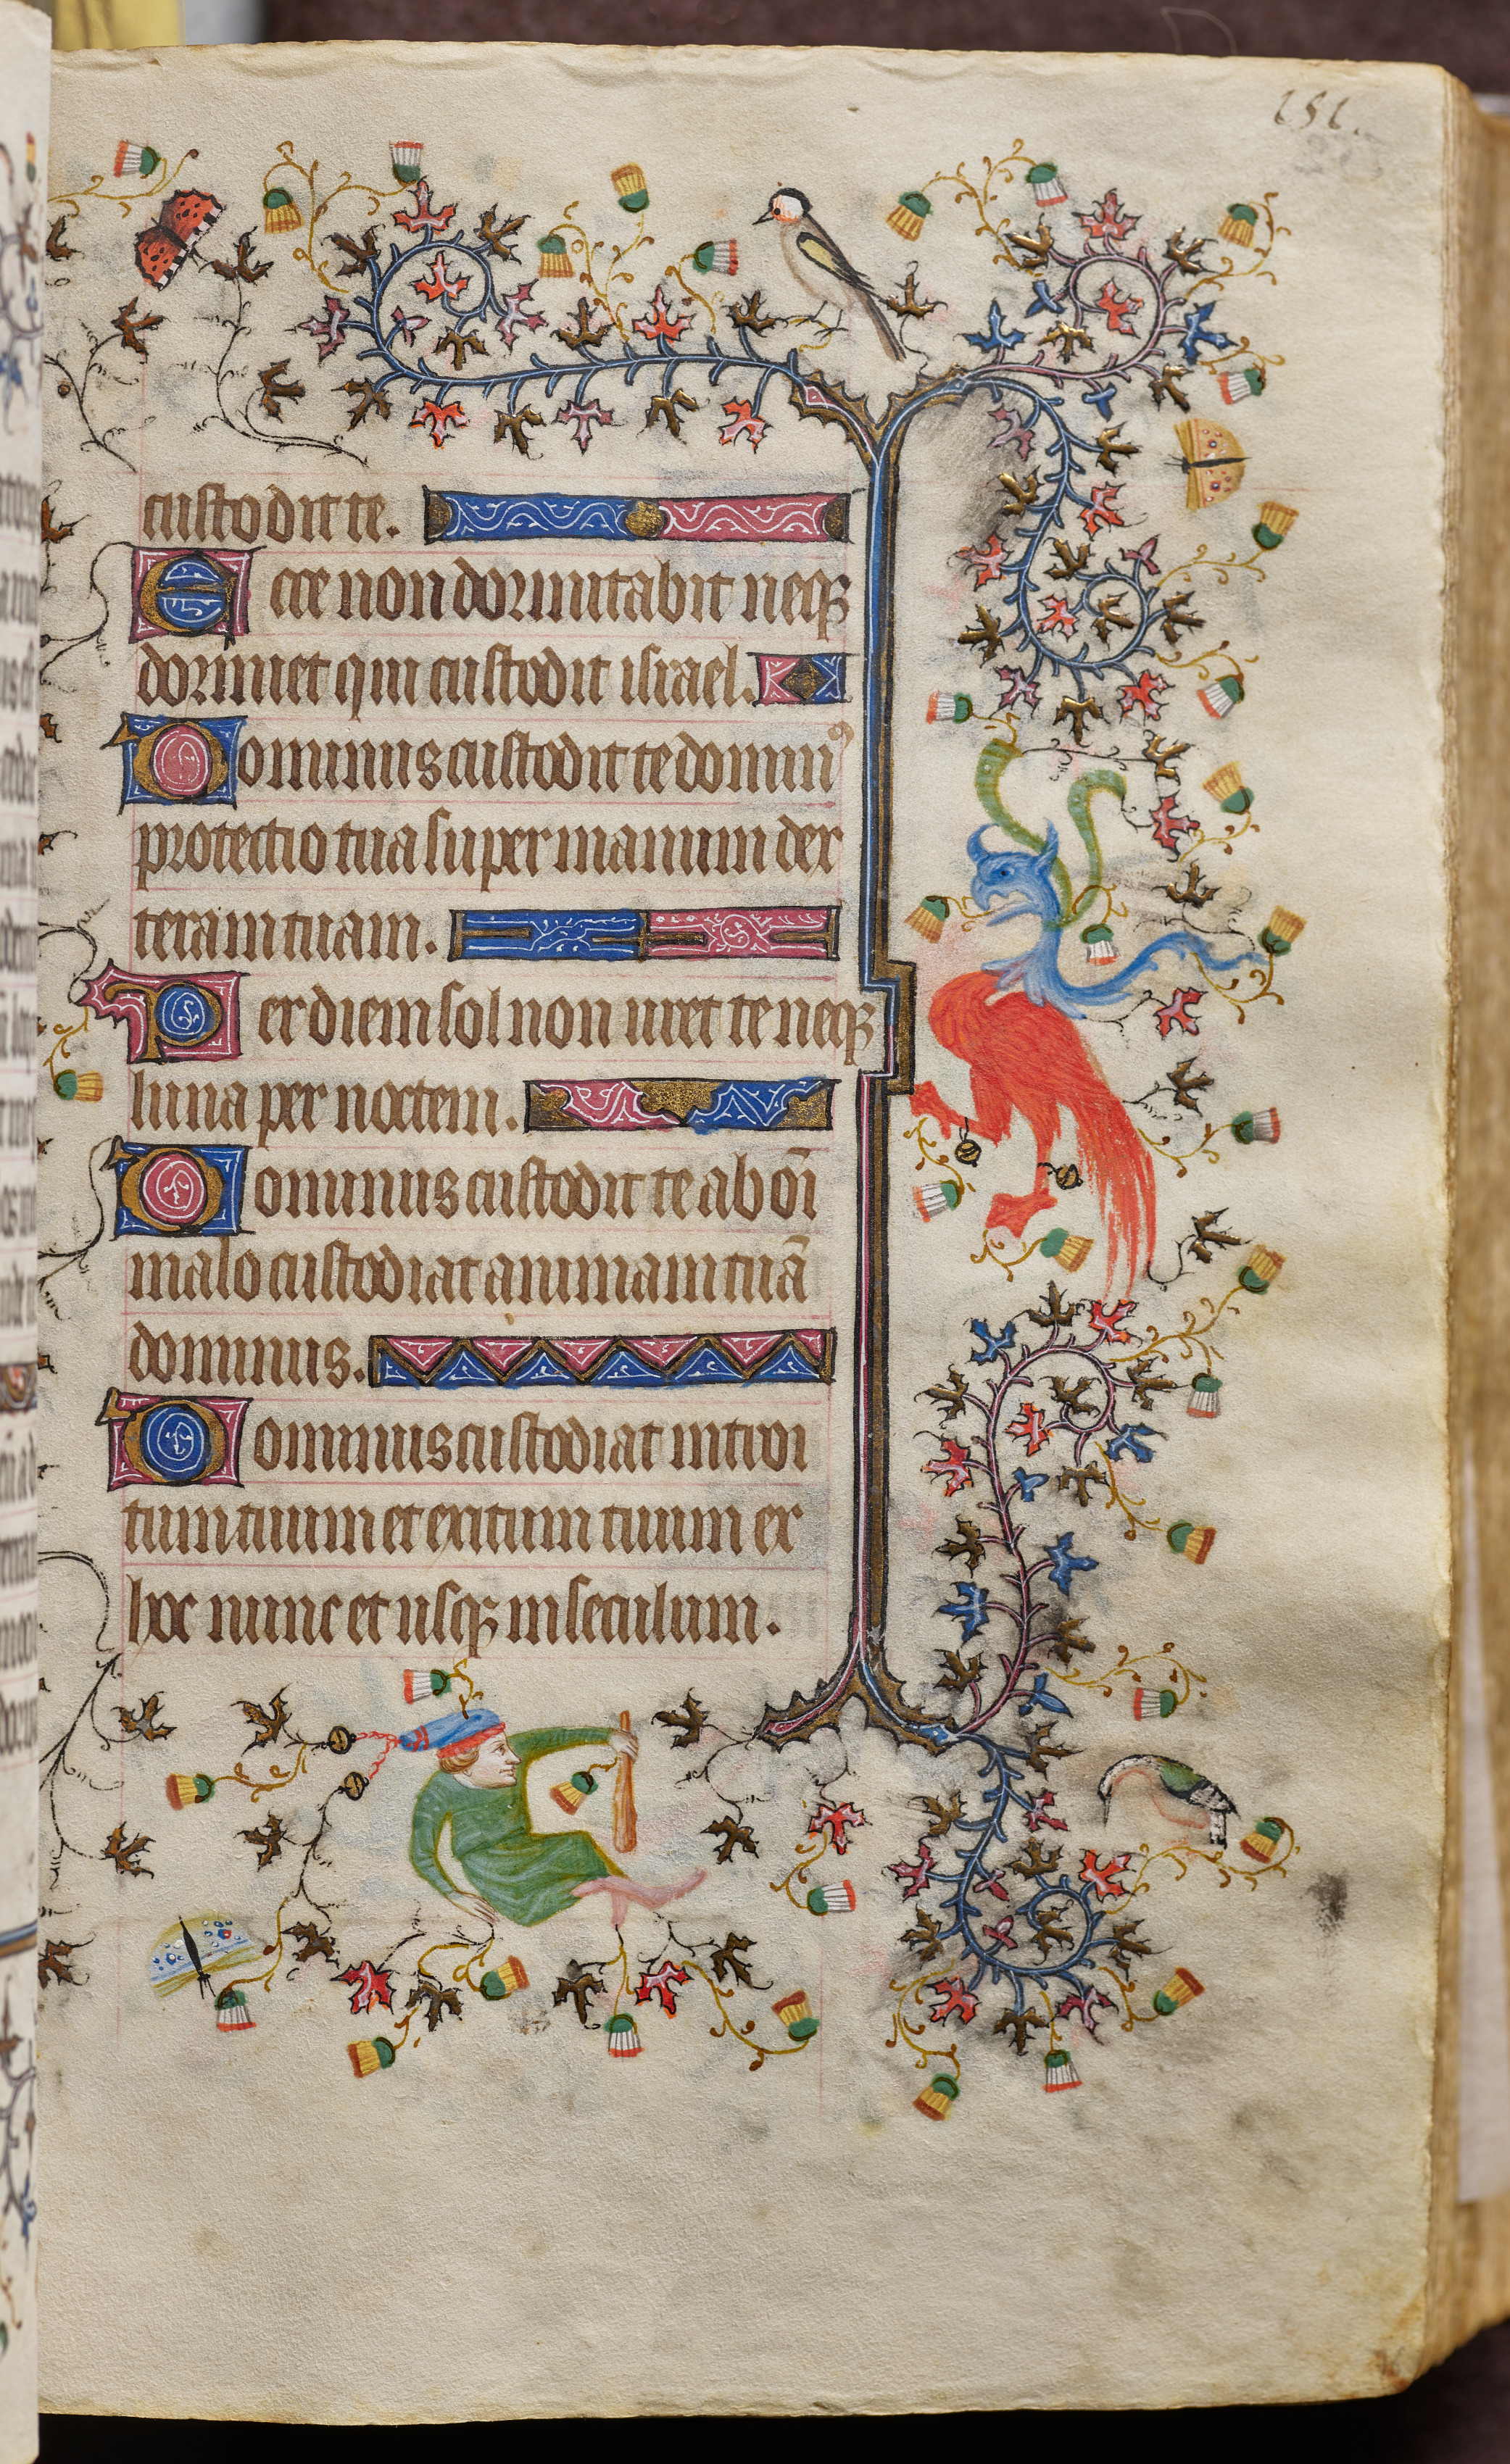 151.
custodit te.
Ecce non dormitabit neqꝫ
dormiet qui custodit israel.
Dominus custodit te dominꝰ
protectio tua super manum dex
teram tuam.
Per diem sol non uret te neqꝫ
luna per noctem.
Dominus custodit te ab oı̄
malo custodiat animam tuā
dominus.
Dominus custodiat introi
tum tuum et exitum tuum ex
hoc nunc et usqꝫ in seculum.